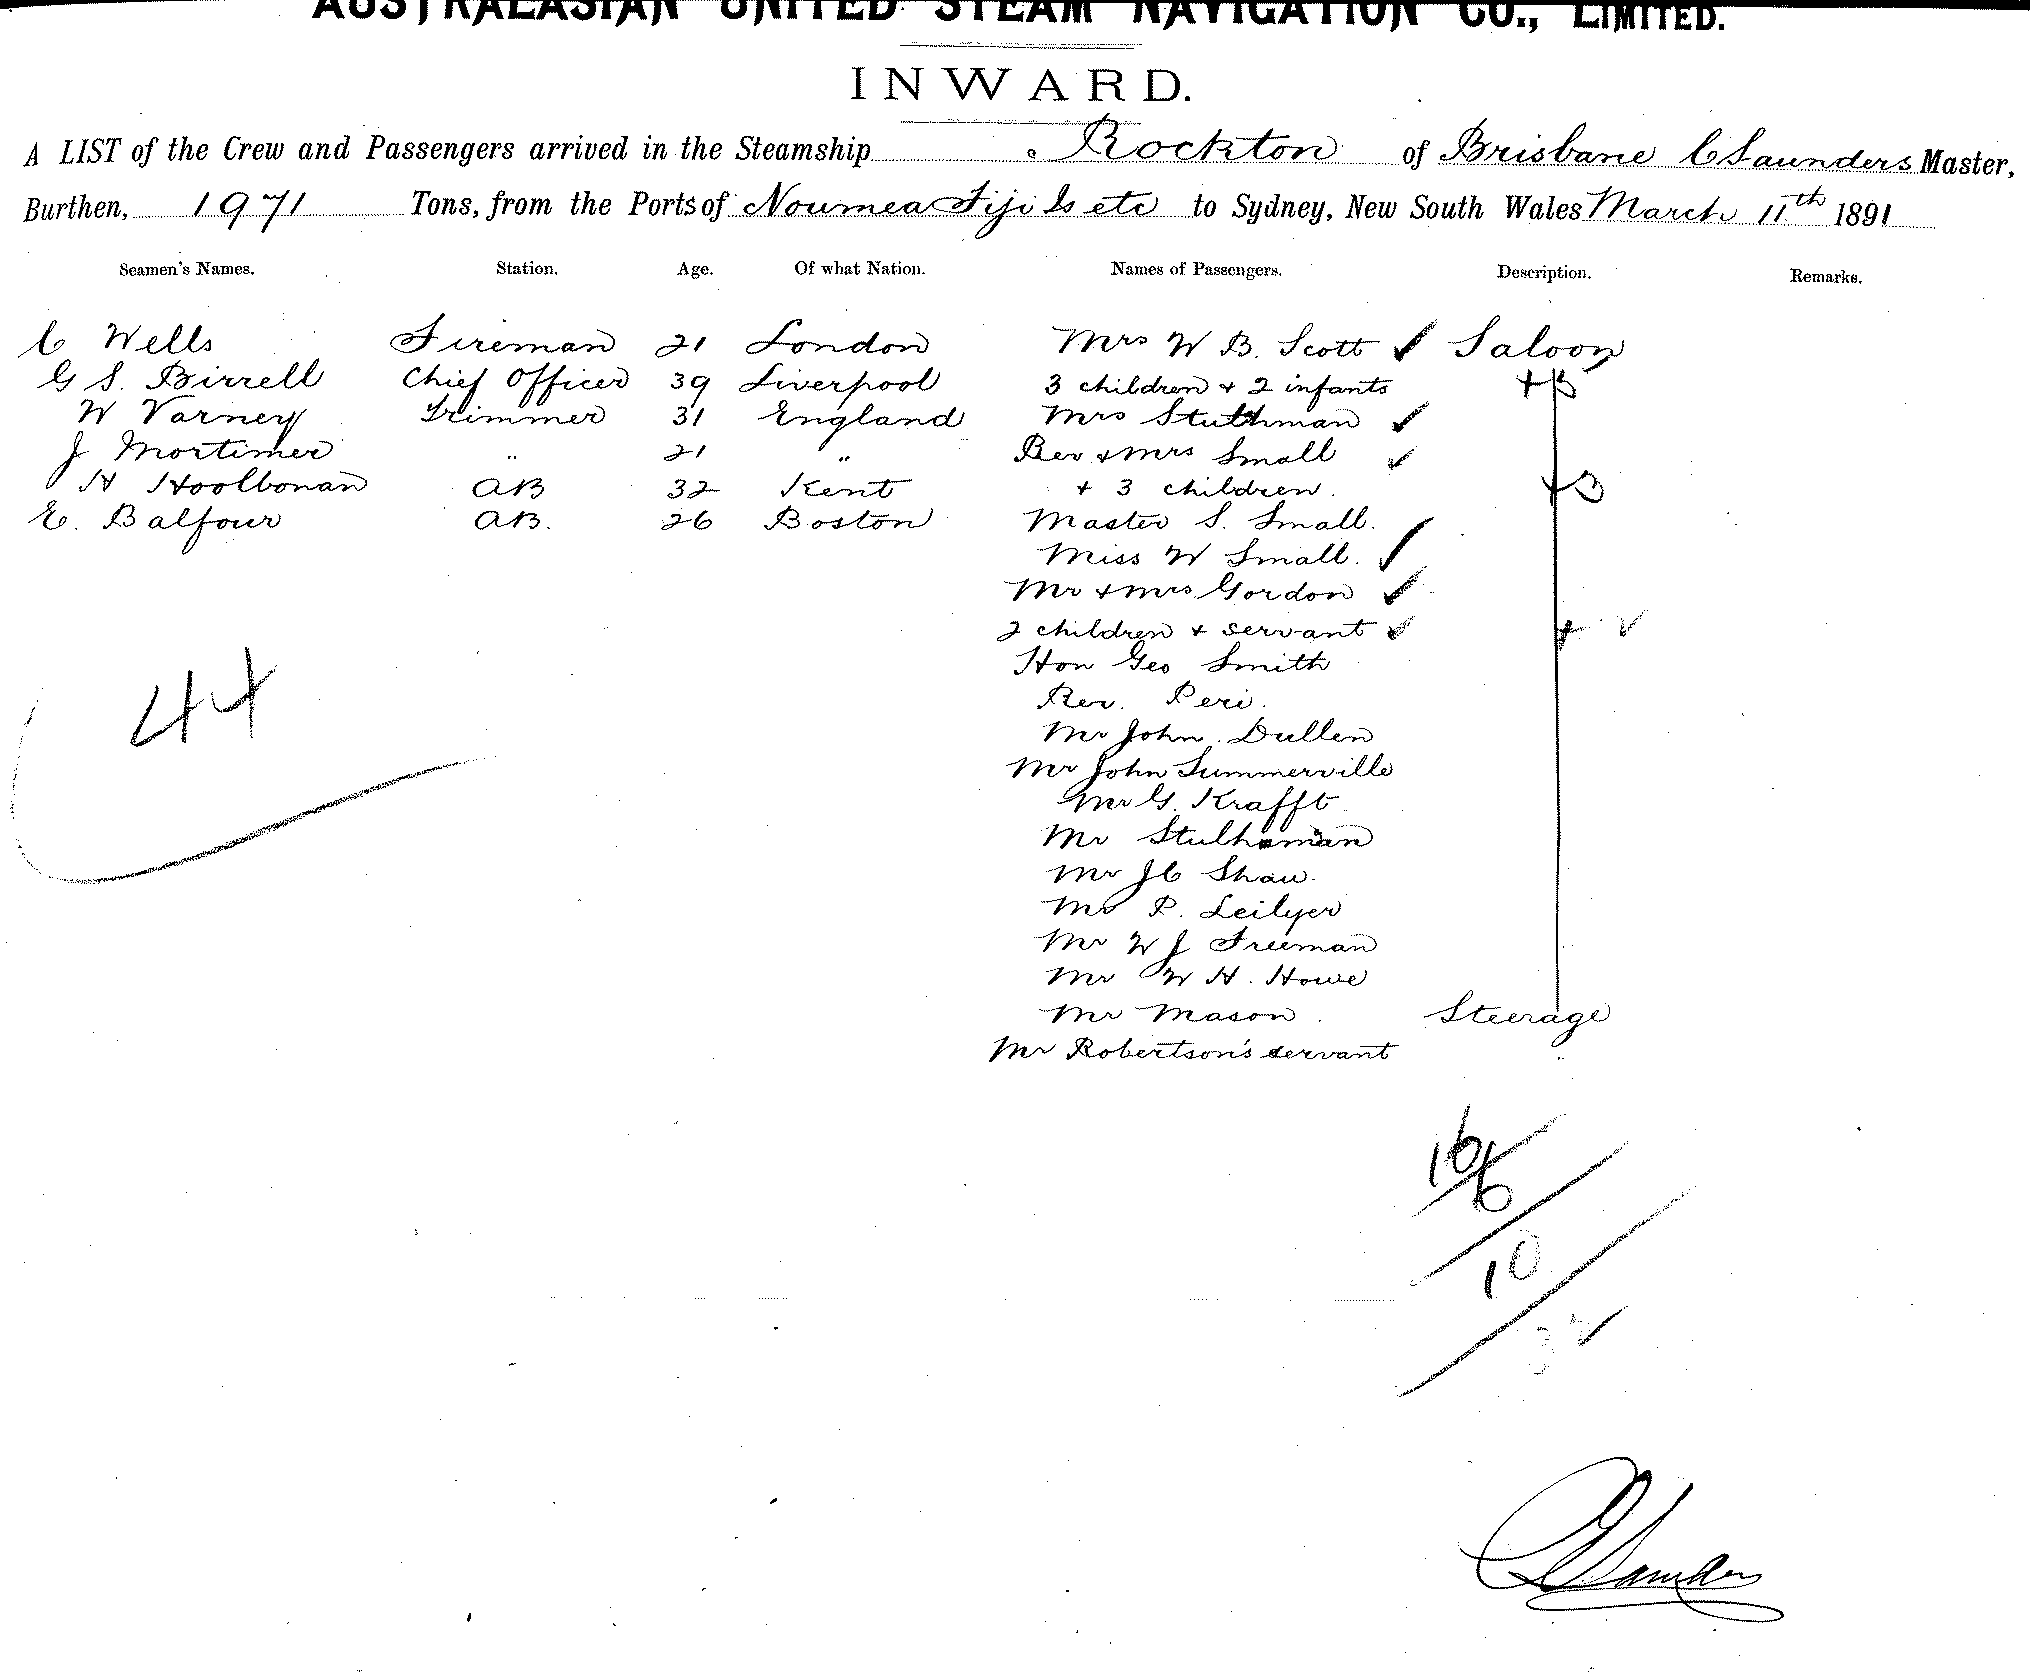 AUSTRALASIAN UNITED STEAM NAVIGATION CO., LIMITED.
INWARD.
A LIST of the Crew and Passengers arrived in the Steamship Rockton of Brisbane C Saunders Master,
Burthen, 1971 Tons, from the Ports of Noumea Fiji Is etc to Sydney, New South Wales March 11th 1891
Seamen's Names. Station. Age. Of what Nation. Names of Passengers. Description. Remarks.
C Wells Fireman 21 London Mrs W B. Scott ✓ Saloon
G S. Birrell Chief Officer 39 Liverpool 3 children + 2 infants + 3
W Varney Trimmer 31 England Mrs Stuthman ✓
J Mortimer " 21 " Rev + Mrs Small ✓
H Hoolbonan AB 32 Kent + 3 children. + 3
E. Balfour AB. 26 Boston Master S. Small.
Miss W Small. ✓
Mr + Mrs Gordon ✓
2 children + servant ✓ + ✓
Hon Geo Smith
Rev. Peri.
Mr John Dullen
Mr John Summerville
Mr G. Krafft
Mr Stulhaman
Mr J C Shaw.
Mr P. Leilyer
Mr W J Freeman
Mr W H. Howe
Mr Mason. Steerage
Mr Robertson's servant "
44
16
6
10
32
C Saunders